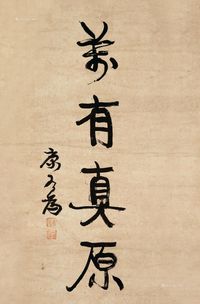 萬有真原
康有為